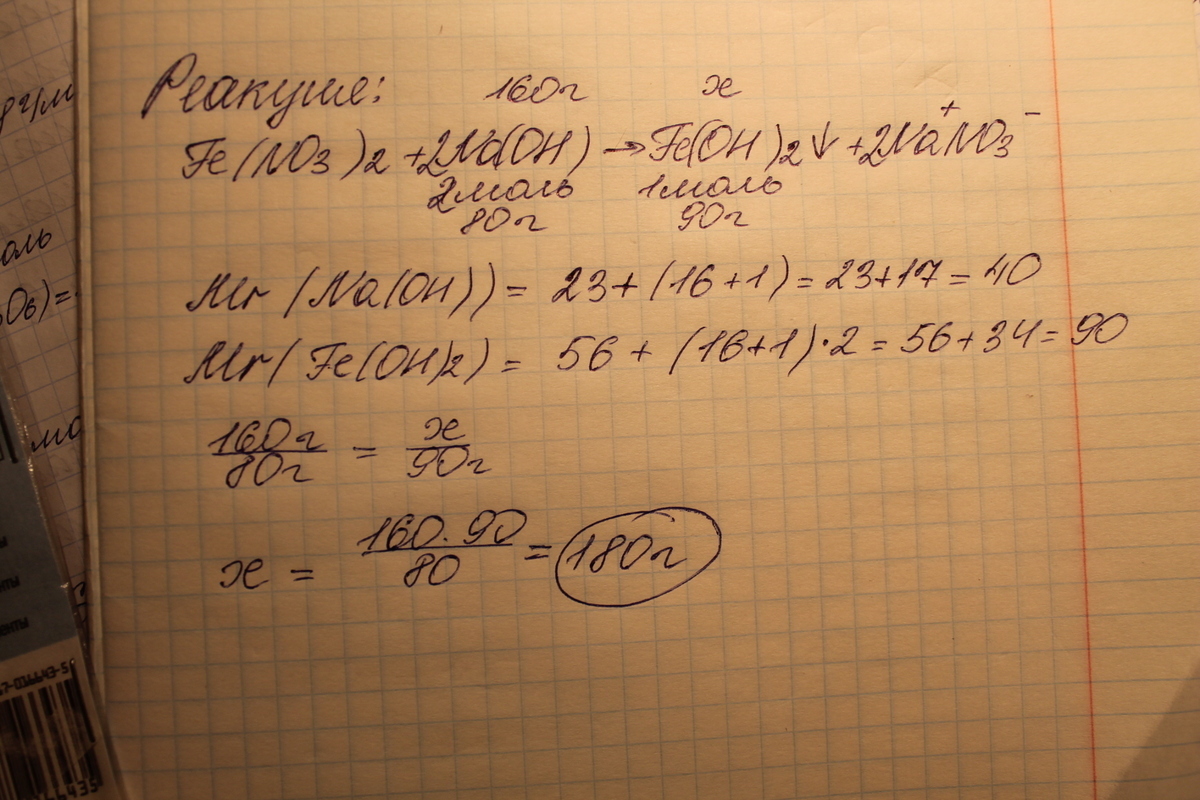 Реакция: 160г x
Fe(NO3)2 + 2Na(OH) → Fe(OH)2↓ + 2Na⁺NO3⁻
2моль 1моль
80г 90г
Mr (Na(OH)) = 23 + (16 + 1) = 23+17 = 40
Mr (Fe(OH)2) = 56 + (16+1)·2 = 56+34 = 90
160г / 80г = x / 90г
x = 160·90 / 80 = 180г
оль
мо
енты